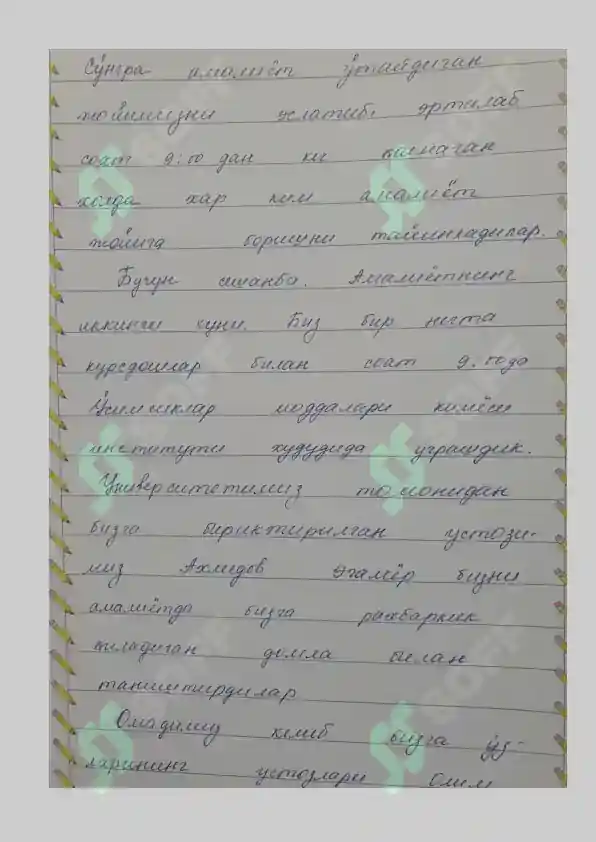 Сўнгра амалиёт ўтайдиган
жойимизни эслатиб, эртилаб
соат 9:00 дан ки килмаган
холда хар ким амалиёт
жойига боришуни тайинладилар.
Бугун шанба. Амалиётнинг
иккинги куни. Биз бир нечта
курсдошлар билан соат 9:00да
Ўсимликлар моддалари кимёси
институти худудида учрашдик.
Университетимиз томонидан
бизга бириктирилган устози-
миз Ахмедов Эгамёр бизни
амалиётда бизга рахбарлик
киладиган домла билан
таништирдилар
Омадимиз келиб бизга ўз-
ларининг устозлари Олим
SOFF
SOFF
SOFF
SOFF
SOFF
SOFF